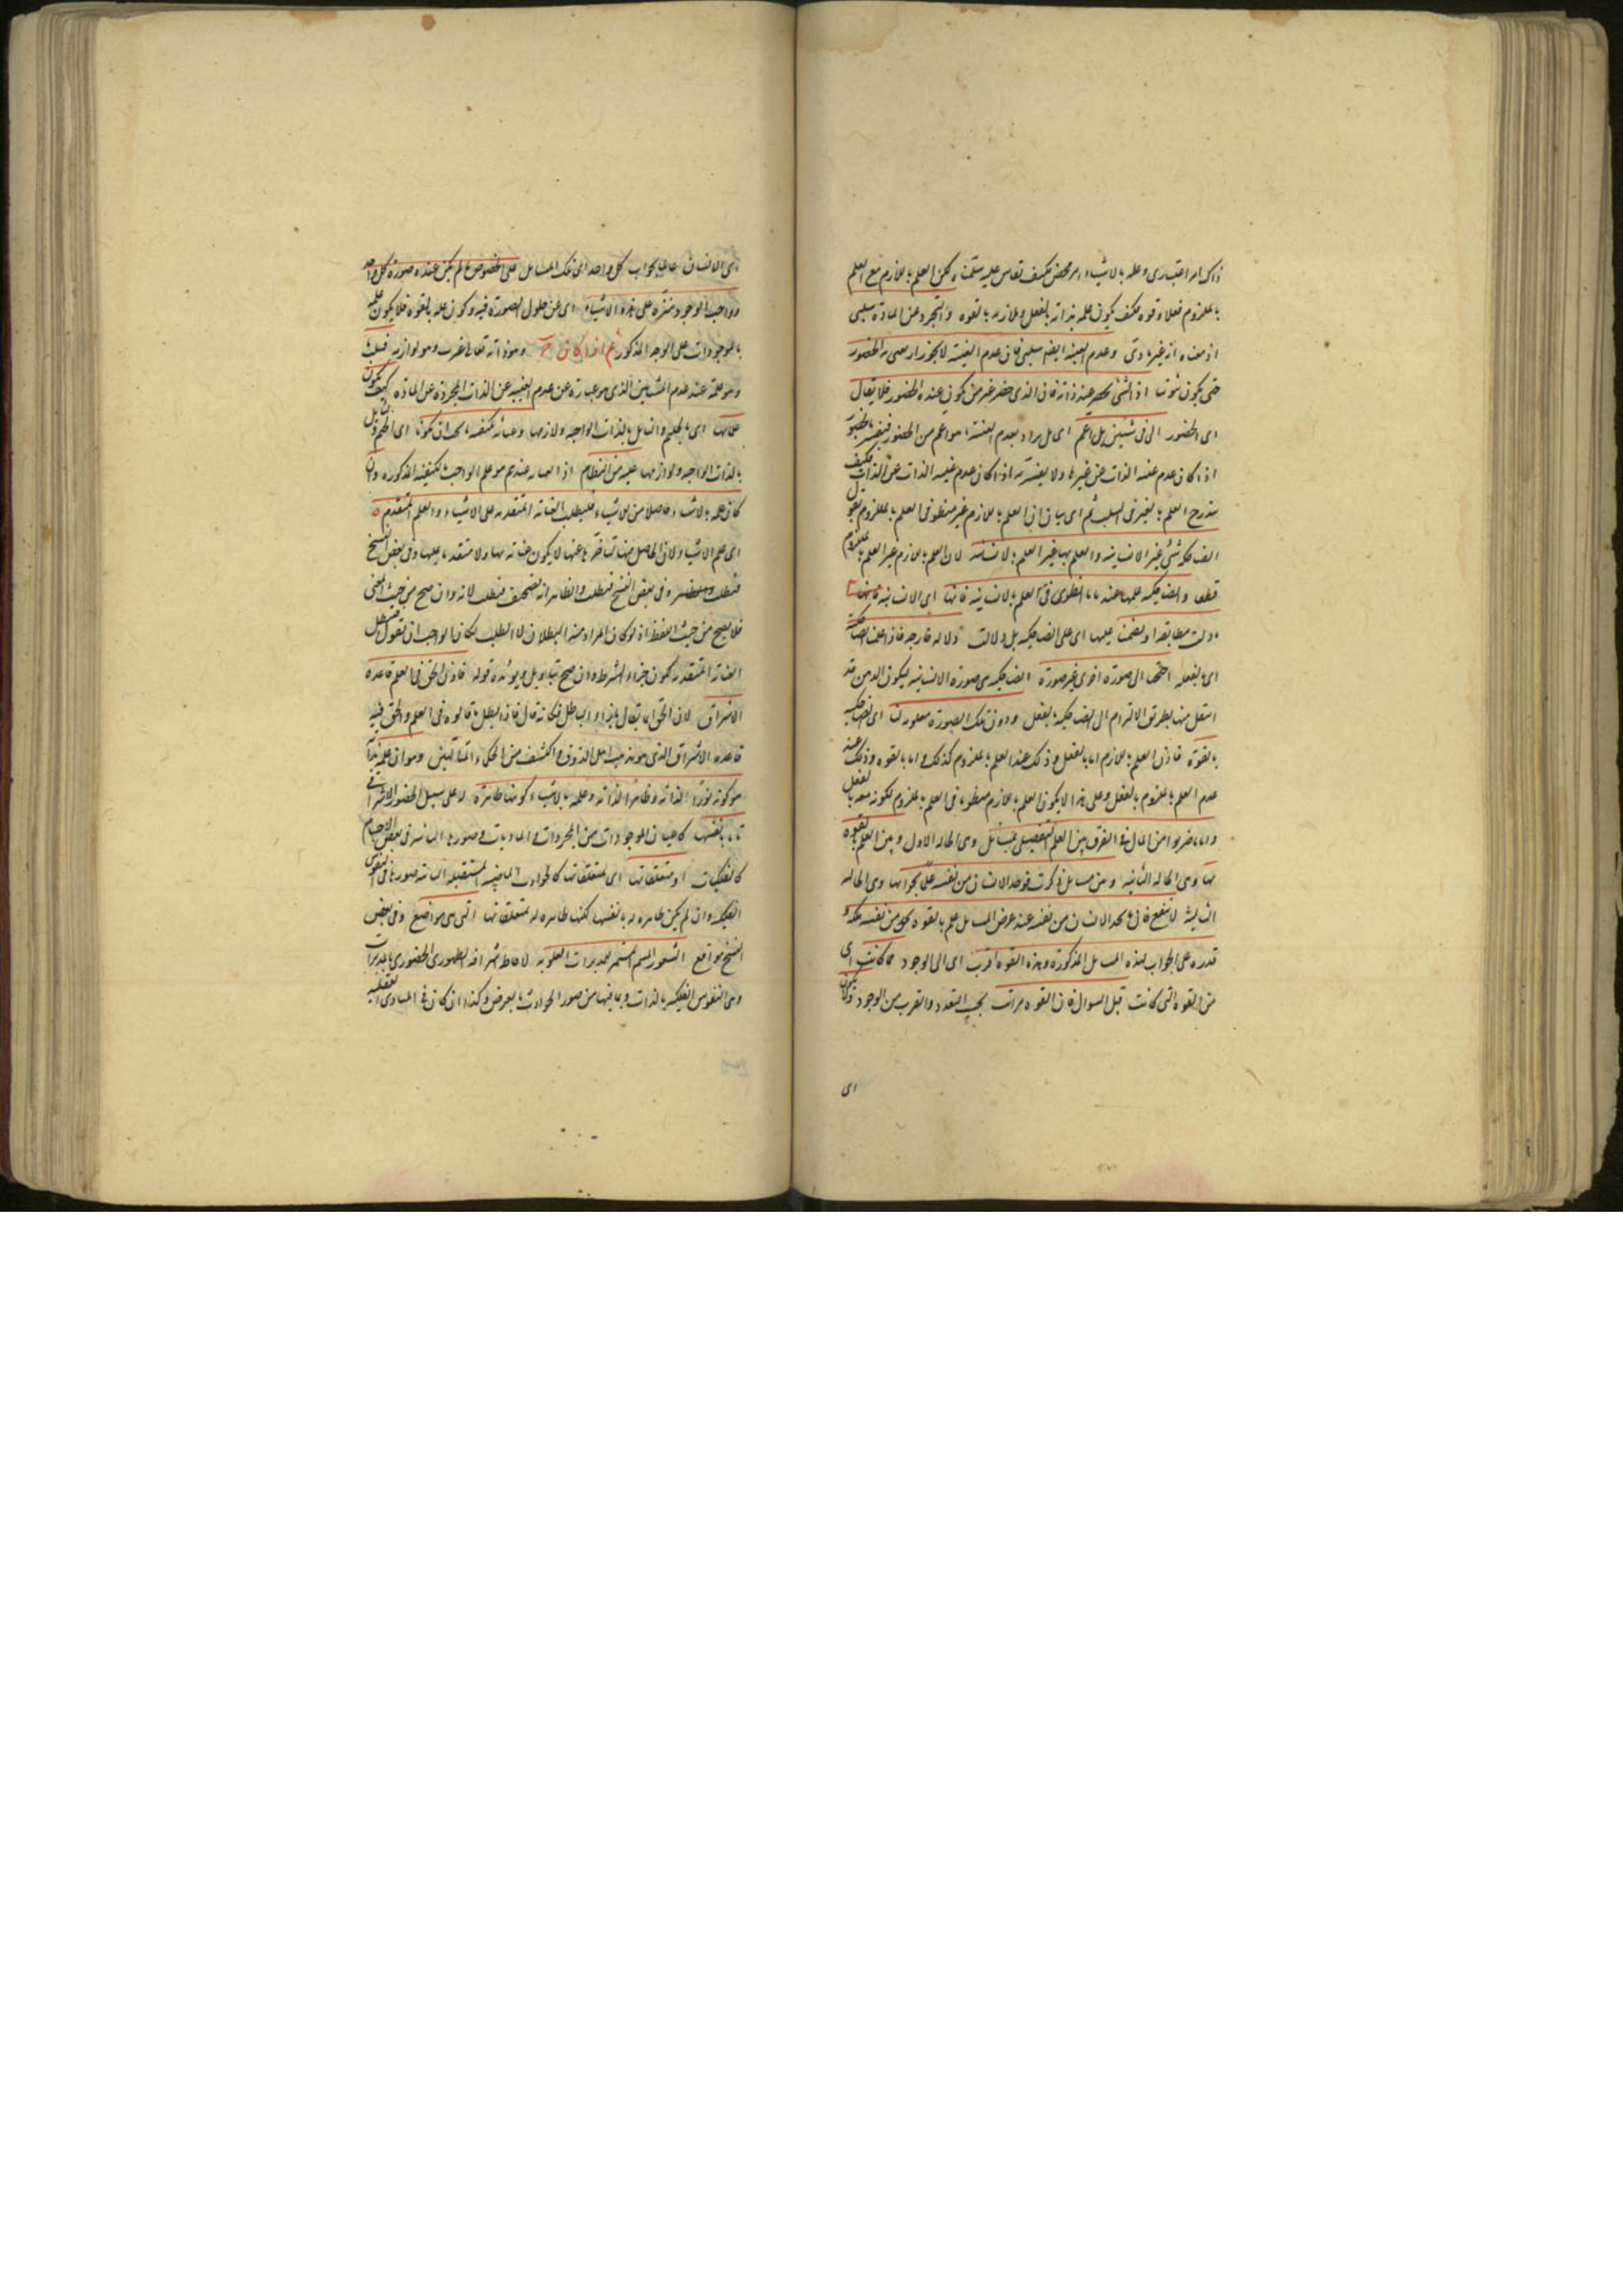 ذاك امر اعتبارى وعلمه بالاشياء امر محض فكيف تقاس عليه سلمنا ه لكن العلم باللازم مع العلم
بالملزوم فعلا وقوه فكيف يكون علمه بذاته بالفعل وبلازمه بالقوه والتجرد عن المادة سلبى
اذ معناه انه غير مادى وعدم الغيبة ايضا سلبى فان عدم الغيبة لا يجوز ان يعنى به الحضور
حتى يكون ثبوتيا اذ الشئ لا يحضر عند ذاته فان الذى حضر غير من يكون عنده الحضور فلا يقال
اى الحضور الا فى شيئين بل اعم اى بل يراد بعدم الغيبة ما هو اعم من الحضور فيفسر بالحضور
اذا كان عدم غيبة الذات عن غيرها ولا يفسر به اذا كان عدم غيبة الذات عن الذات فكيف
يندرج العلم بالغير فى السلب ثم اى بيان ان العلم باللازم غير منطو فى العلم بالملزوم نقول
الضاحكية شئ غير الانسانية والعلم بها غير العلم بالانسانية لان العلم باللازم غير العلم بالملزوم
قطعا والضاحكية علمها عندنا ما انطوى فى العلم بالانسانية فانها اى الانسانية
ما دلت مطابقة او تضمنا عليها اى على الضاحكية بل دلالت دلالة خارجة فاذا علمنا الضاحكية
اى بالفعل احتجنا الى صورة اخرى غير صورة الضاحكية هى صورة الانسانية ليكون الذهن قد
انتقل منها بطريق الالتزام الى الضاحكية بالفعل ودون تلك الصورة معلومة لنا اى الضاحكية
بالقوة فاذن العلم باللازم اما بالفعل وذلك عند العلم بالملزوم كذلك واما بالقوه وذلك عند
عدم العلم بالملزوم بالفعل وعلى هذا لا يكون العلم باللازم منطويا فى العلم بالملزوم لكونه معه بالفعل
واما ما ضربوا من المثال فى الفرق بين العلم التفصيلى بمسائل وهى الحالة الاولى وبين العلم بالقوه
بها وهى الحالة الثانية وبين مسائل ذكرت فوجد الانسان من نفسه علما بجوابها وهى الحالة
الثالثة لا ينفع فان ما يجد الانسان من نفسه عند عرض المسائل علم بالقوه يجد من نفسه ملكة و
قدره على الجواب لهذه المسائل المذكورة وهذه القوه اقرب اى الى الوجود مما كانت اى
من القوه التى كانت قبل السوال فان للقوه مراتب بحسب البعد والقرب من الوجود ولا يكون
اى
اى الانسان عالما بجواب كل واحد اى من تلك المسائل على الخصوص ما لم يكن عنده صورة كل واحد
وواجب الوجود منزه على هذه الاشياء اى عن حلول الصورة فيه وكون علمه بالقوه فلا يكون علمه
بالموجودات على الوجه المذكور ثم اذا كان ج وهو ذاته تعالى غير ب وهو لوازمه فسلب
وهو علمه عند عدم المشائين الذى هو عبارة عن عدم الغيبة عن الذات المجردة عن المادة كيف يكون
علما بهما اى بالجيم والباء بل بالذات الواجبة ولازمها وعناية بكيفية ما يجب ان يكونا اى الجيم والباء بل
بالذات الواجبة ولوازمها عليه من النظام اذ العناية عندهم هو علم الواجب بالكيفية المذكورة وان
كان علمه بالاشياء حاصلا من الاشياء فليطلب العناية المتقدمة على الاشياء والعلم المتقدم ه
اى على الاشياء لان الحاصل منها لتاخره عنها لا يكون عناية بها ولا متقدما عليها وفى بعض النسخ
فتطلب وفى بعض النسخ فبطلت والظاهر انه تصحيف فتطلب لانه وان صح من حيث المعنى
فلا يصح من حيث اللفظ اذ لو كان المراد منه البطلان لا الطلب لكان الواجب ان تقول فتبطل
العناية المتقدمة ليكون جزاء الشرط وان صح بتاويل ويؤيده قوله فاذن الحق فى العلم قاعدة
الاشراق لان الحق انما يقال بازاء الباطل فكانه قال فاذا بطل ما قالوه فى العلم والحق فيه
قاعدة الاشراق الذى هو مذهب اهل الذوق والكشف من الحكماء المتالهين وهو ان علمه بذاته
هو كونه نورا لذاته وظاهرا لذاته وعلمه بالاشياء كونها ظاهرة له على سبيل الحضور الاشراقى
اما بانفسها كاعيان الموجودات من المجردات والماديات وصورها الثابتة فى بعض الاجسام
كالفلكيات او متعلقاتها اى بمتعلقاتها كالحوادث الماضية والمستقبلة الثابتة صورها فى النفوس
الفلكية وان لم يكن ظاهره له بانفسها لكنها ظاهره له بمتعلقاتها التى هى مواضع وفى بعض
النسخ مواقع الشعور المستمر للمدبرات العلوية لاحاطة اشراقه الظهورى الحضورى بالمدبرات
وهى النفوس الفلكية بالذات وبما فيها من صور الحوادث بالعرض وكذا ان كان فى المبادى العقلية